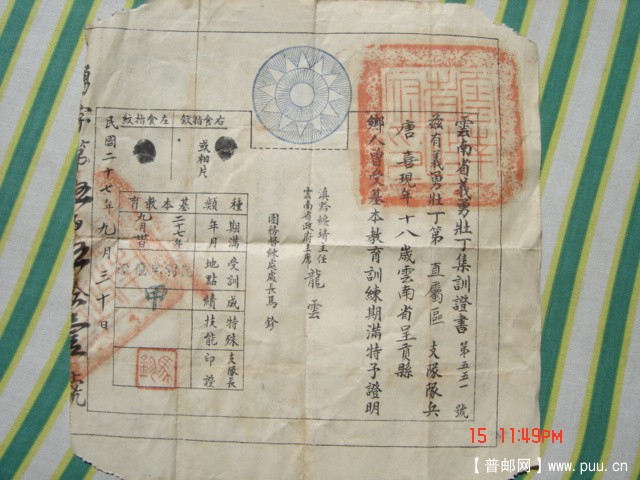 雲南省義勇壯丁集訓證書 第五五一號
茲有義勇壯丁第 直屬區 支隊 隊兵
唐喜現年十八歲雲南省呈貢縣
鄉人曾受基本教育訓練期滿特予證明
滇黔綏靖主任
雲南省政府主席 龍雲
團務督練處處長馬鉁
右食指紋
或相片
左食指紋
種類
期滿年月
受訓地點
成績
特殊技能
支隊長印證
基本教育
二十七年
九月廿日
甲
民國二十七年九月三十日
勇字第伍百伍拾壹號
15 11:49PM
【普邮网】www.puu.cn